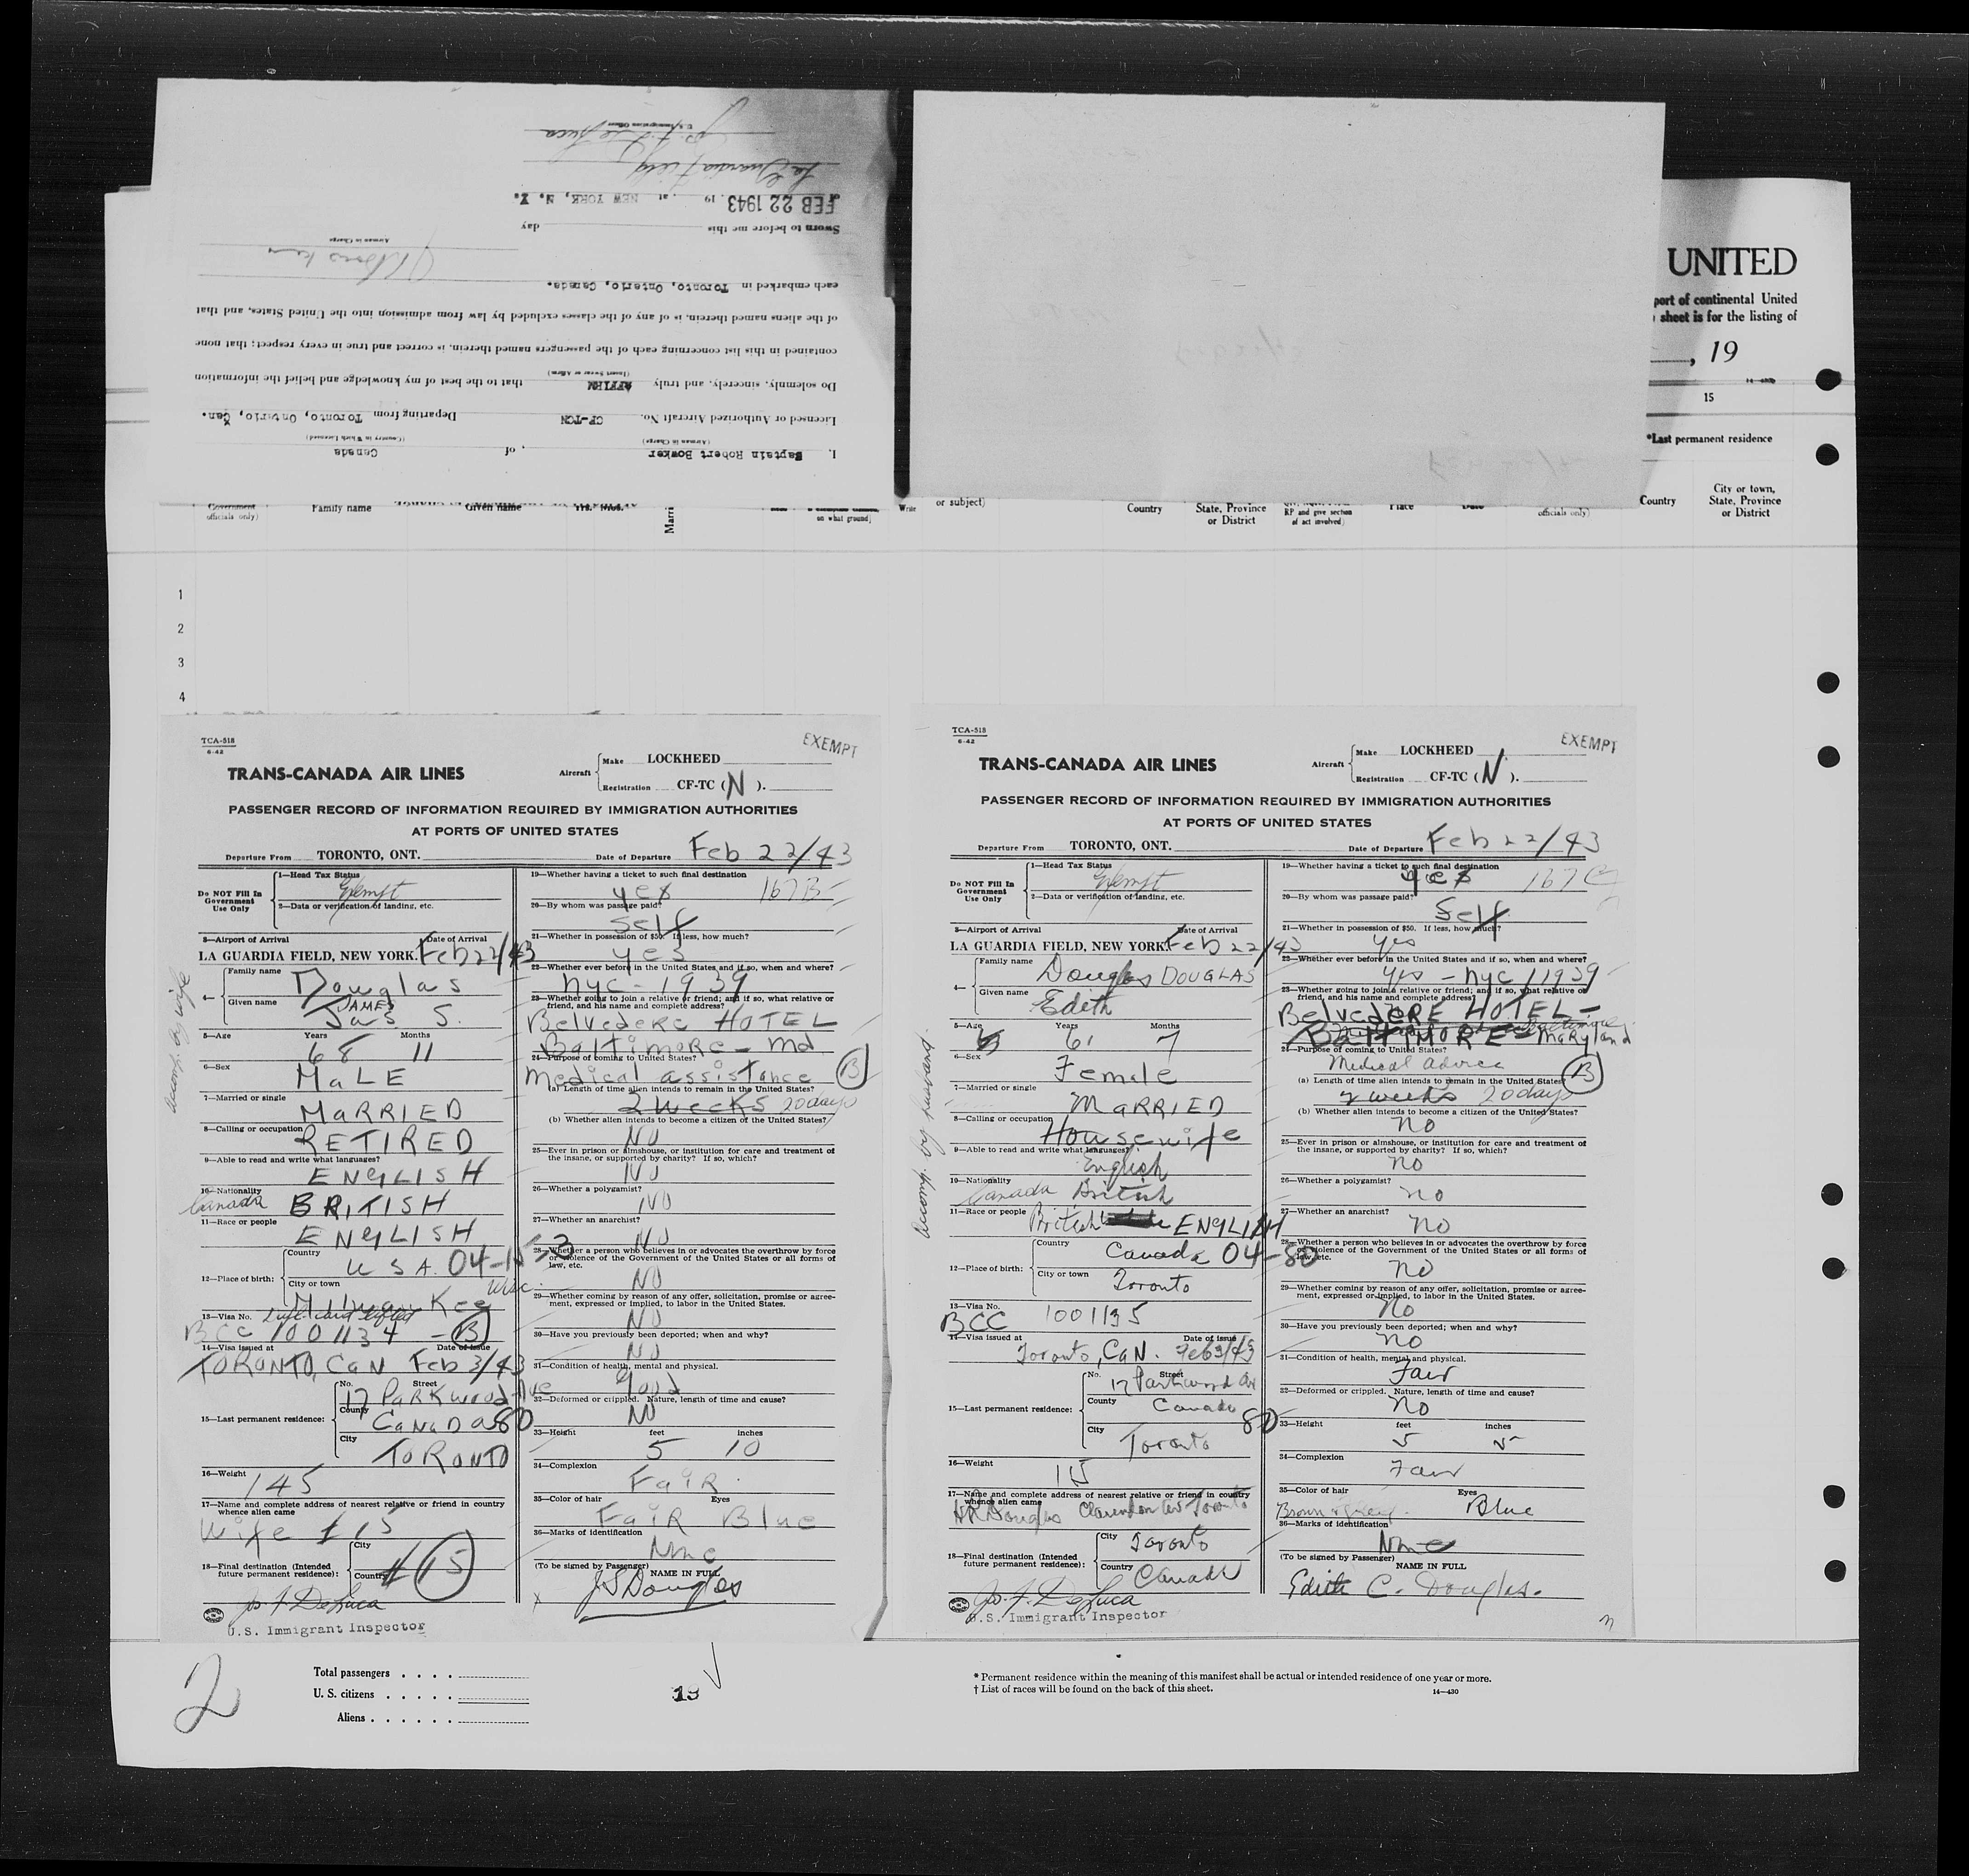 I, Captain Robert Bowker, of Canada
(Airman in Charge) (Country in Which Licensed)
Licensed or Authorized Aircraft No. CF-TCN Departing from Toronto, Ontario, Can.
Do solemnly, sincerely, and truly AFFIRM that to the best of my knowledge and belief the information
(Insert Swear or Affirm)
contained in this list concerning each of the passengers named therein, is correct and true in every respect; that none
of the aliens named therein, is of any of the classes excluded by law from admission into the United States, and that
each embarked in Toronto, Ontario, Canada.
Airman in Charge
Sworn to before me this day
FEB 22 1943 19 , at NEW YORK, N. Y.
La Guardia Field
U.S. Immigration Officer
UNITED
port of continental United
sheet is for the listing of
, 19
15
*Last permanent residence
Country
City or town, State, Province or District
Government officials only)
Family name
Given name
Marri
on what ground)
Write
or subject)
Country
State, Province or District
RP and give section of act involved)
Place
Date
officials only)
1
2
3
4
TCA-518
6-42
EXEMPT
TRANS-CANADA AIR LINES
Aircraft
Make LOCKHEED
Registration CF-TC (N).
PASSENGER RECORD OF INFORMATION REQUIRED BY IMMIGRATION AUTHORITIES
AT PORTS OF UNITED STATES
Departure From TORONTO, ONT. Date of Departure Feb 22/43
Do NOT Fill In Government Use Only
1—Head Tax Status
Exempt
2—Data or verification of landing, etc.
3—Airport of Arrival Date of Arrival
LA GUARDIA FIELD, NEW YORK. Feb 22/43
accomp. by wife
4— Family name Douglas
JAMES
Given name Jas S.
5—Age Years 68 Months 11
6—Sex MaLE
7—Married or single MaRRIED
8—Calling or occupation RETIRED
9—Able to read and write what languages?
ENGLISH
10—Nationality
Canada BRITISH
11—Race or people
ENGLISH
12—Place of birth: Country U S A. 04-15-3
City or town Milwaukee Wisc.
13—Visa No.
BCC 1001134 - B
14—Visa issued at Date of Issue
TORONTO, CaN Feb 3/43
15—Last permanent residence:
No. Street 17 PaRKwood Ave
County CaNaDa 80
City ToRoNTO
16—Weight 145
17—Name and complete address of nearest relative or friend in country whence alien came
Wife £15
18—Final destination (Intended future permanent residence):
City
Country £15
Jos. F. DeLuca
U.S. Immigrant Inspector
19—Whether having a ticket to such final destination
yes 167B
20—By whom was passage paid?
self
21—Whether in possession of $50. If less, how much?
yes
22—Whether ever before in the United States and if so, when and where?
nyc - 1939
23—Whether going to join a relative or friend; and if so, what relative or friend, and his name and complete address?
Belvedere HOTEL
Baltimore - Md
24—Purpose of coming to United States?
Medical assistance B
(a) Length of time alien intends to remain in the United States?
2 weeks 20 days
(b) Whether alien intends to become a citizen of the United States?
NO
25—Ever in prison or almshouse, or institution for care and treatment of the insane, or supported by charity? If so, which?
NO
26—Whether a polygamist?
NO
27—Whether an anarchist?
NO
28—Whether a person who believes in or advocates the overthrow by force or violence of the Government of the United States or all forms of law, etc.
NO
29—Whether coming by reason of any offer, solicitation, promise or agreement, expressed or implied, to labor in the United States.
NO
30—Have you previously been deported; when and why?
NO
31—Condition of health, mental and physical.
Good
32—Deformed or crippled. Nature, length of time and cause?
NO
33—Height feet 5 inches 10
34—Complexion
FaiR
35—Color of hair Eyes
FaiR Blue
36—Marks of identification
None
(To be signed by Passenger) NAME IN FULL
X J S Douglas
TCA-518
6-42
EXEMPT
TRANS-CANADA AIR LINES
Aircraft
Make LOCKHEED
Registration CF-TC (N).
PASSENGER RECORD OF INFORMATION REQUIRED BY IMMIGRATION AUTHORITIES
AT PORTS OF UNITED STATES
Departure From TORONTO, ONT. Date of Departure Feb 22/43
Do NOT Fill In Government Use Only
1—Head Tax Status
Exempt
2—Data or verification of landing, etc.
3—Airport of Arrival Date of Arrival
LA GUARDIA FIELD, NEW YORK. Feb 22/43
accomp. by husband.
4— Family name Douglas DOUGLAS
Given name Edith
5—Age Years 61 Months 7
6—Sex Female
7—Married or single MaRRIED
8—Calling or occupation Housewife
9—Able to read and write what languages?
English
10—Nationality
Canada British
11—Race or people British ENGLISH
12—Place of birth: Country Canada 04-80
City or town Toronto
13—Visa No.
BCC 1001135
14—Visa issued at Date of issue
Toronto, CaN. Feb 3/43
15—Last permanent residence:
No. Street 17 Parkwood Av
County Canada 80
City Toronto
16—Weight 115
17—Name and complete address of nearest relative or friend in country whence alien came
Douglas Clarendon Av Toronto
18—Final destination (Intended future permanent residence):
City Toronto
Country Canada
Jos. F. DeLuca
U.S. Immigrant Inspector
19—Whether having a ticket to such final destination
yes 167C
20—By whom was passage paid?
Self
21—Whether in possession of $50. If less, how much?
yes
22—Whether ever before in the United States and if so, when and where?
yes - nyc 1939
23—Whether going to join a relative or friend; and if so, what relative or friend, and his name and complete address?
BelvedeRE HOTEL -
BaltIMORE - Maryland
24—Purpose of coming to United States?
Medical advice B
(a) Length of time alien intends to remain in the United States?
2 weeks 20 days
(b) Whether alien intends to become a citizen of the United States?
no
25—Ever in prison or almshouse, or institution for care and treatment of the insane, or supported by charity? If so, which?
no
26—Whether a polygamist?
no
27—Whether an anarchist?
no
28—Whether a person who believes in or advocates the overthrow by force or violence of the Government of the United States or all forms of law, etc.
no
29—Whether coming by reason of any offer, solicitation, promise or agreement, expressed or implied, to labor in the United States.
No
30—Have you previously been deported; when and why?
no
31—Condition of health, mental and physical.
Fair
32—Deformed or crippled. Nature, length of time and cause?
no
33—Height feet 5 inches 5
34—Complexion
Fair
35—Color of hair Eyes
Brown Blue
36—Marks of identification
None
(To be signed by Passenger) NAME IN FULL
Edith C. Douglas.
2
Total passengers
U. S. citizens
Aliens
19
* Permanent residence within the meaning of this manifest shall be actual or intended residence of one year or more.
† List of races will be found on the back of this sheet.
14—430